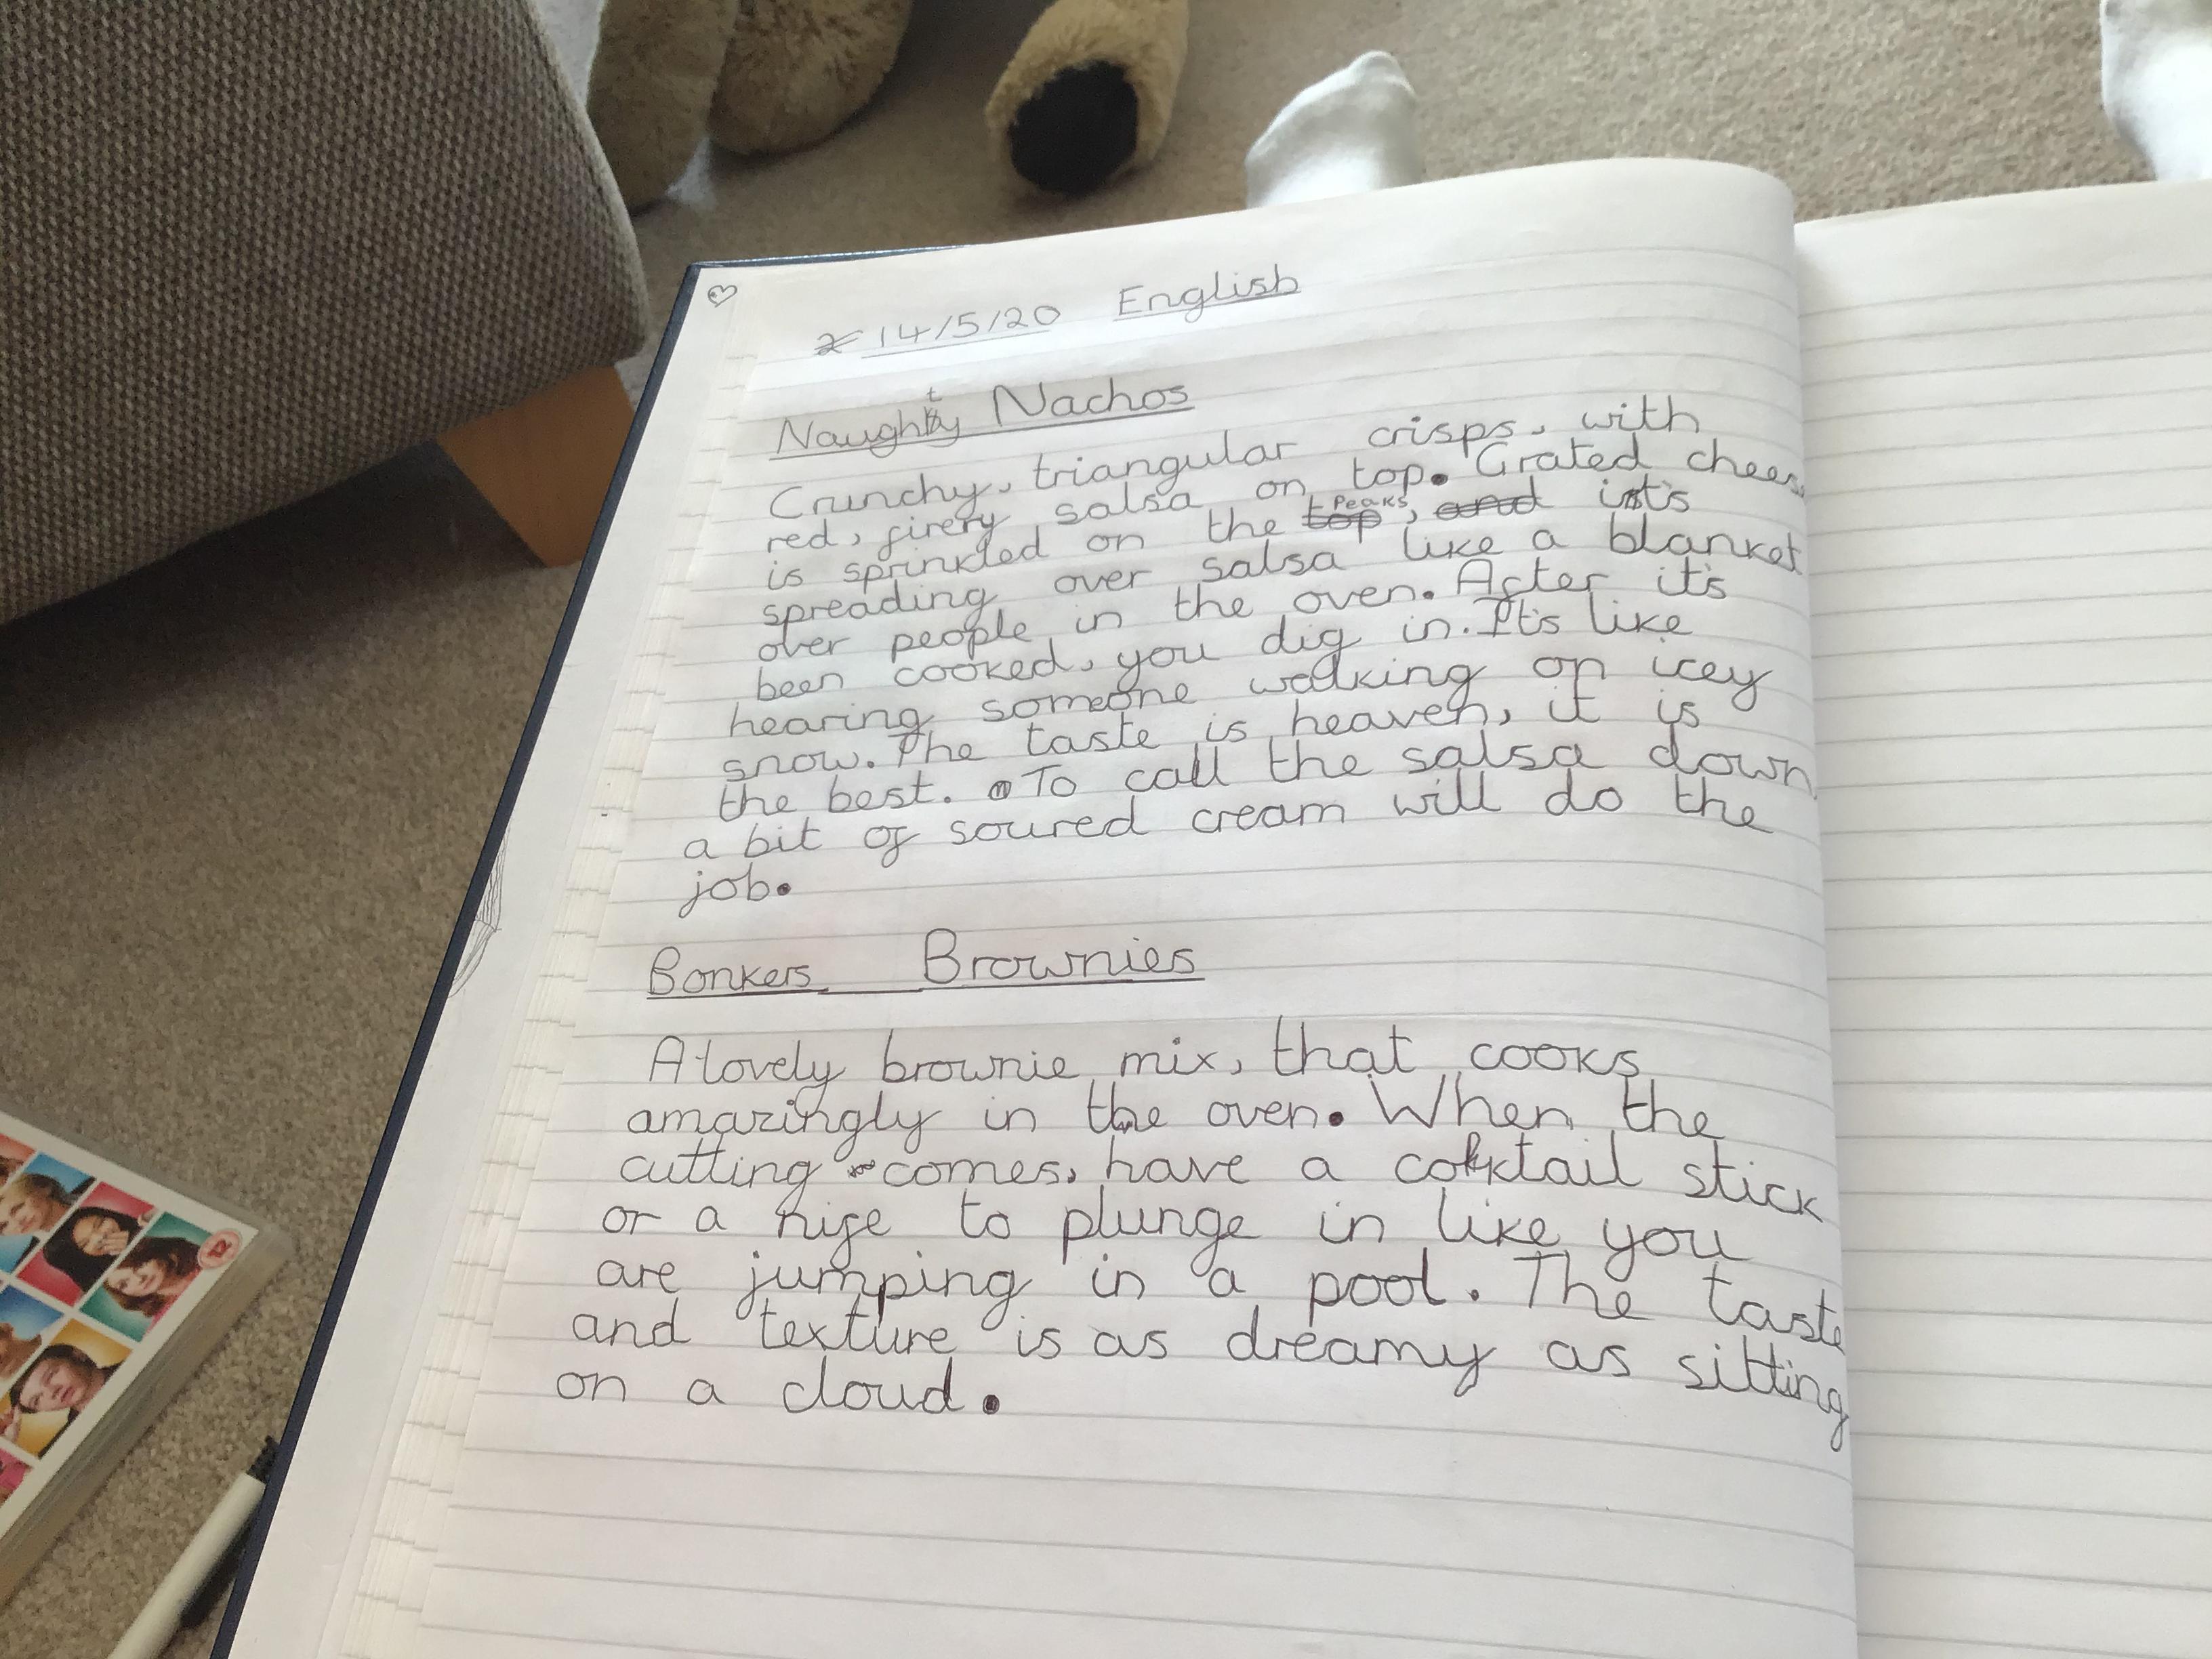 14/5/20 English
Naughty Nachos
Crunchy, triangular crisps, with
red, firery salsa on top. Grated cheese
is sprinkled on the peaks, it's
spreading over salsa like a blanket
over people in the oven. After it's
been cooked, you dig in. It's like
hearing someone walking on icey
snow. The taste is heaven, it is
the best. To call the salsa down,
a bit of soured cream will do the
job.
Bonkers Brownies
A lovely brownie mix, that cooks
amazingly in the oven. When the
cutting comes, have a coktail stick
or a nife to plunge in like you
are jumping in a pool. The taste
and texture is as dreamy as sitting
on a cloud.
12